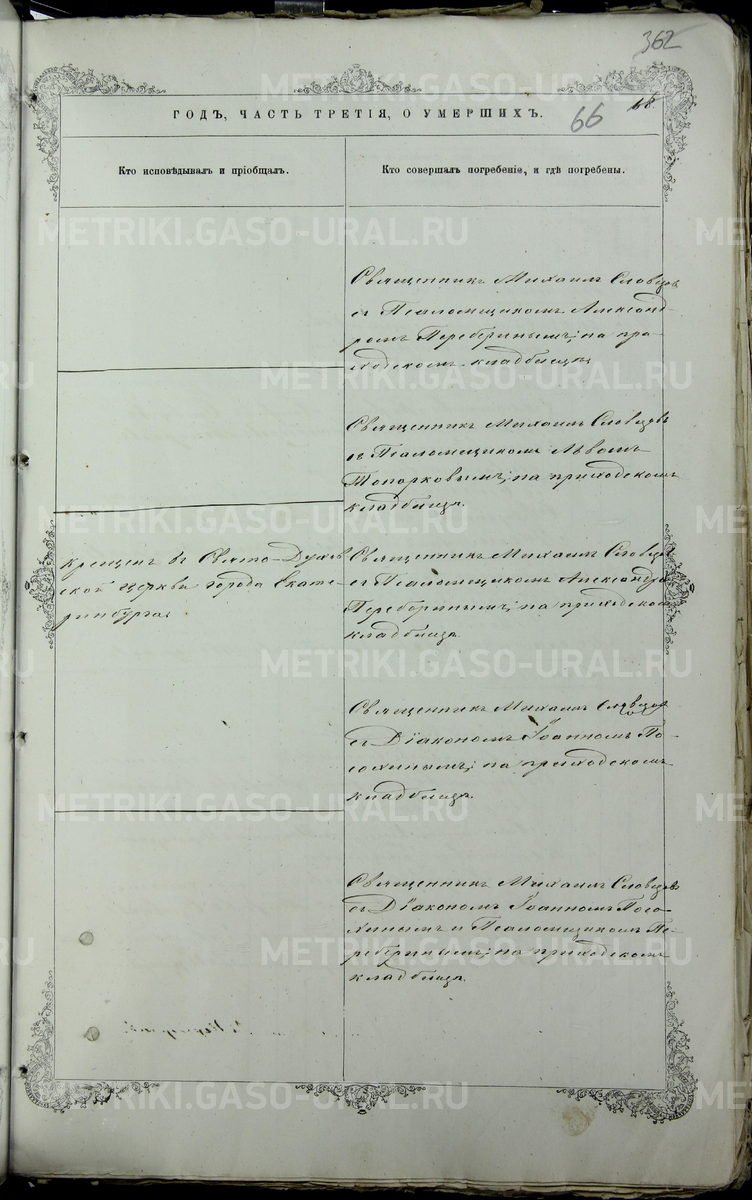 362
ГОДЪ, ЧАСТЬ ТРЕТІЯ, О УМЕРШИХЪ.
66
Кто исповѣдывалъ и пріобщалъ.
Кто совершалъ погребеніе, и гдѣ погребены.
Священникъ Михаилъ Словцовъ
съ Псаломщикомъ Александ-
ромъ Переберинымъ; на при-
ходскомъ кладбищѣ
Священникъ Михаилъ Словцовъ
съ Псаломщикомъ Львомъ
Топорковымъ; на приходскомъ
кладбищѣ.
Крещенъ въ Свято-Духов
ской церкви города Екате-
ринбурга.
Священникъ Михаилъ Словцовъ
съ Псаломщикомъ Александромъ
Переберинымъ; на приходскомъ
кладбищѣ.
Священникъ Михаилъ Словцовъ
съ Діакономъ Іоанномъ По-
сохинымъ; на приходскомъ
кладбищѣ.
Священникъ Михаилъ Словцовъ
съ Діакономъ Іоанномъ Посо-
хинымъ и Псаломщикомъ Пе-
реберинымъ; на приходскомъ
кладбищѣ.
METRIKI.GASO-URAL.RU